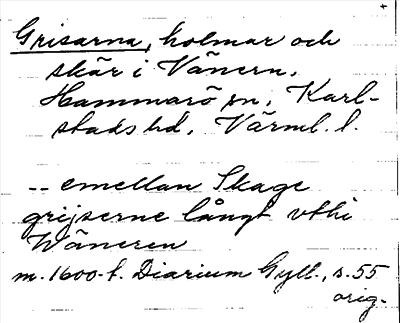 Grisarna, holmar och
skär i Vänern,
Hammarö sn, Karl-
stads hd, Värml. l.
-- emellan Skage
grijserne långt vthi
Wäneren
m. 1600-t. Diarium Gyll., s. 55
orig.